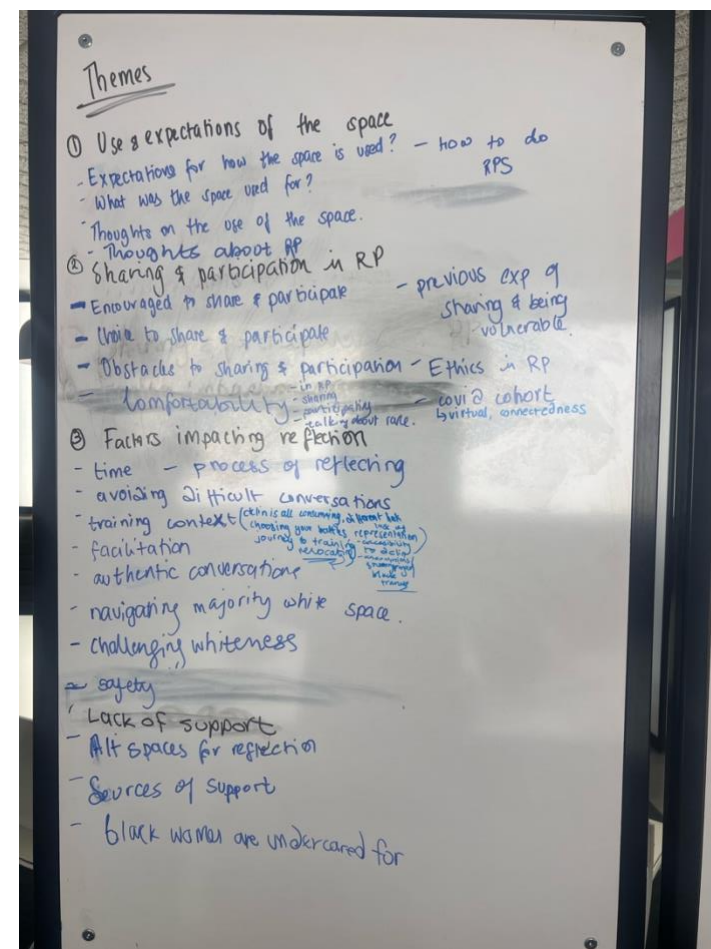 Themes
① Use & expectations of the space
- Expectations for how the space is used? - how to do RPS
- What was the space used for?
- Thoughts on the use of the space.
- Thoughts about RP
② Sharing & participation in RP
- Encouraged to share & participate - previous exp of sharing & being vulnerable.
- Choice to share & participate
- Obstacles to sharing & participation - Ethics in RP
- Comfortability - in RP - sharing - participating - talking about race. - covid cohort ↳ virtual, connectedness
③ Factors impacting reflection
- time - process of reflecting
- avoiding difficult conversations
- training context (clin is all consuming, different
choosing your battles, lack of representation)
journey to training -
relocating
- facilitation
- authentic conversations
- navigating majority white space.
- challenging whiteness
- safety
' Lack of support
- Alt spaces for reflection
- Sources of support
- black women are undercared for